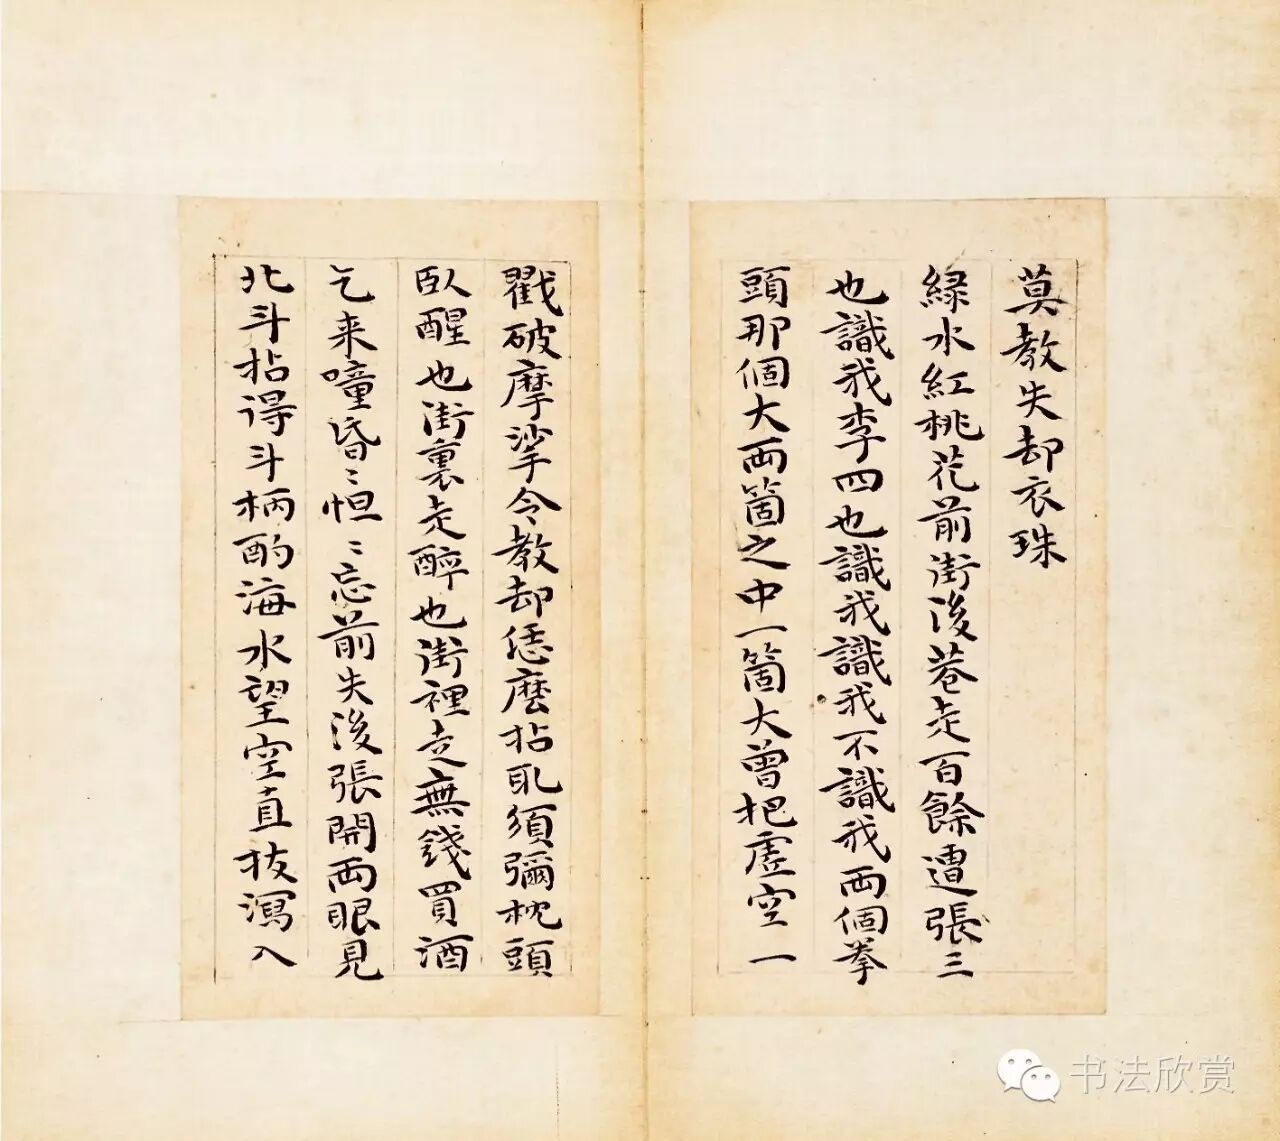 莫教失却衣珠
緑水紅桃花前街後巷走百餘遭張三
也識我李四也識我識我不識我兩個拳
頭那個大兩箇之中一箇大曾把虛空一
戳破摩挲令教却恁麼拈取須彌枕頭
臥醒也街裏走醉也街裡走無錢買酒
乞来噇昏〻怛〻忘前失後張開兩眼見
北斗拈得斗柄酌海水望空直拔瀉入
书法欣赏